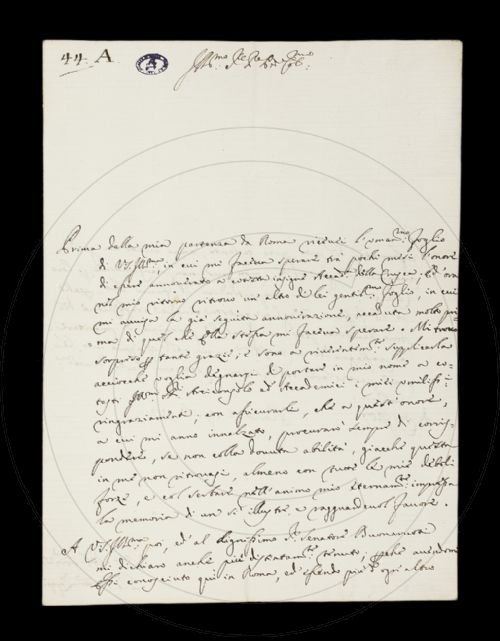 44. A
Ill.mo Sig.re Sig.re P.ne Col.mo
Prima della mia partenza da Roma ricevei l'uman.mo foglio
di V.S. Ill.ma, in cui mi faceva sperare frà pochi mesi l'onore
di essere annoverato a cotesta insigne Accad. della Crusca, ed ora
nel mio ritorno ritrovo un'altro di lei gentil.mo foglio, in cui
mi avvisa la già seguita annoverazione, accaduta molto pri-
ma di quel che Ella stessa mi faceva sperare. Mi trovo
sorpreso per tante grazie, e sono a riverentem.te supplicarla
acciocchè voglia degnarsi di portare in mio nome a co-
testi Ill.mi Sig.ri Arciconsolo ed Accademici i miei umilissi-
ringraziamenti, con assicurarli, che a quest'onore,
a cui mi anno innalzato, procurarò sempre di corris-
pondere, se non colla dovuta abilità, giacchè questa
in me non ritrovasi, almeno con tutte le mie debili
forze, e col serbare nell'animo mio eternam.te impressa
la memoria di un sì illustre, e ragguardevol favore.
A V.S. Ill.ma poi, ed al degnissimo Sig. Senatore Buonarroti
mi dichiaro anche più distintam.te tenuto, perchè avendomi
Essi conosciuto quì in Roma, ed essendo più d'ogni altro